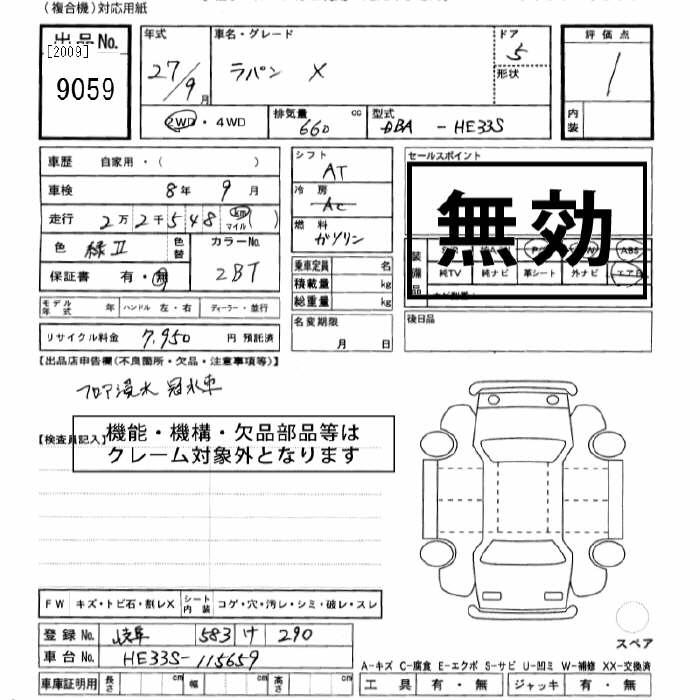 (複合機)対応用紙
出品No.
[2009]
9059
年式
27/9月
車名・グレード
ラパン X
ドア
5
形状
評価点
1
内装
2WD・4WD
排気量 cc
660
型式
DBA -HE33S
車歴 自家用・( )
車検 8年 9月
走行 2万2千548 km マイル ( )
色 緑II 色替
カラーNo.
ZBT
保証書 有・無
シフト
AT
冷房
AC
燃料
ガソリン
乗車定員 名
積載量 kg
総重量 kg
セールスポイント
無効
装備品
ABS
純TV 純ナビ 革シート 外ナビ エアB
モデル年式 年 ハンドル 左・右 ディーラー・並行
リサイクル料金 7,950 円 預託済
名変期限
月 日
後日品
【出品店申告欄(不良箇所・欠品・注意事項等)】
フロア浸水 冠水車
【検査員記入】
機能・機構・欠品部品等は
クレーム対象外となります
FW キズ・トビ石・割レX シート内装 コゲ・穴・汚レ・シミ・破レ・スレ
登録No. 岐阜 583 け 290
車台No. HE33S-115659
車庫証明用 長さ cm 幅 cm 高さ cm
スペア
A-キズ C-腐食 E-エクボ S-サビ U-凹ミ W-補修 XX-交換済
工具 有・無 ジャッキ 有・無